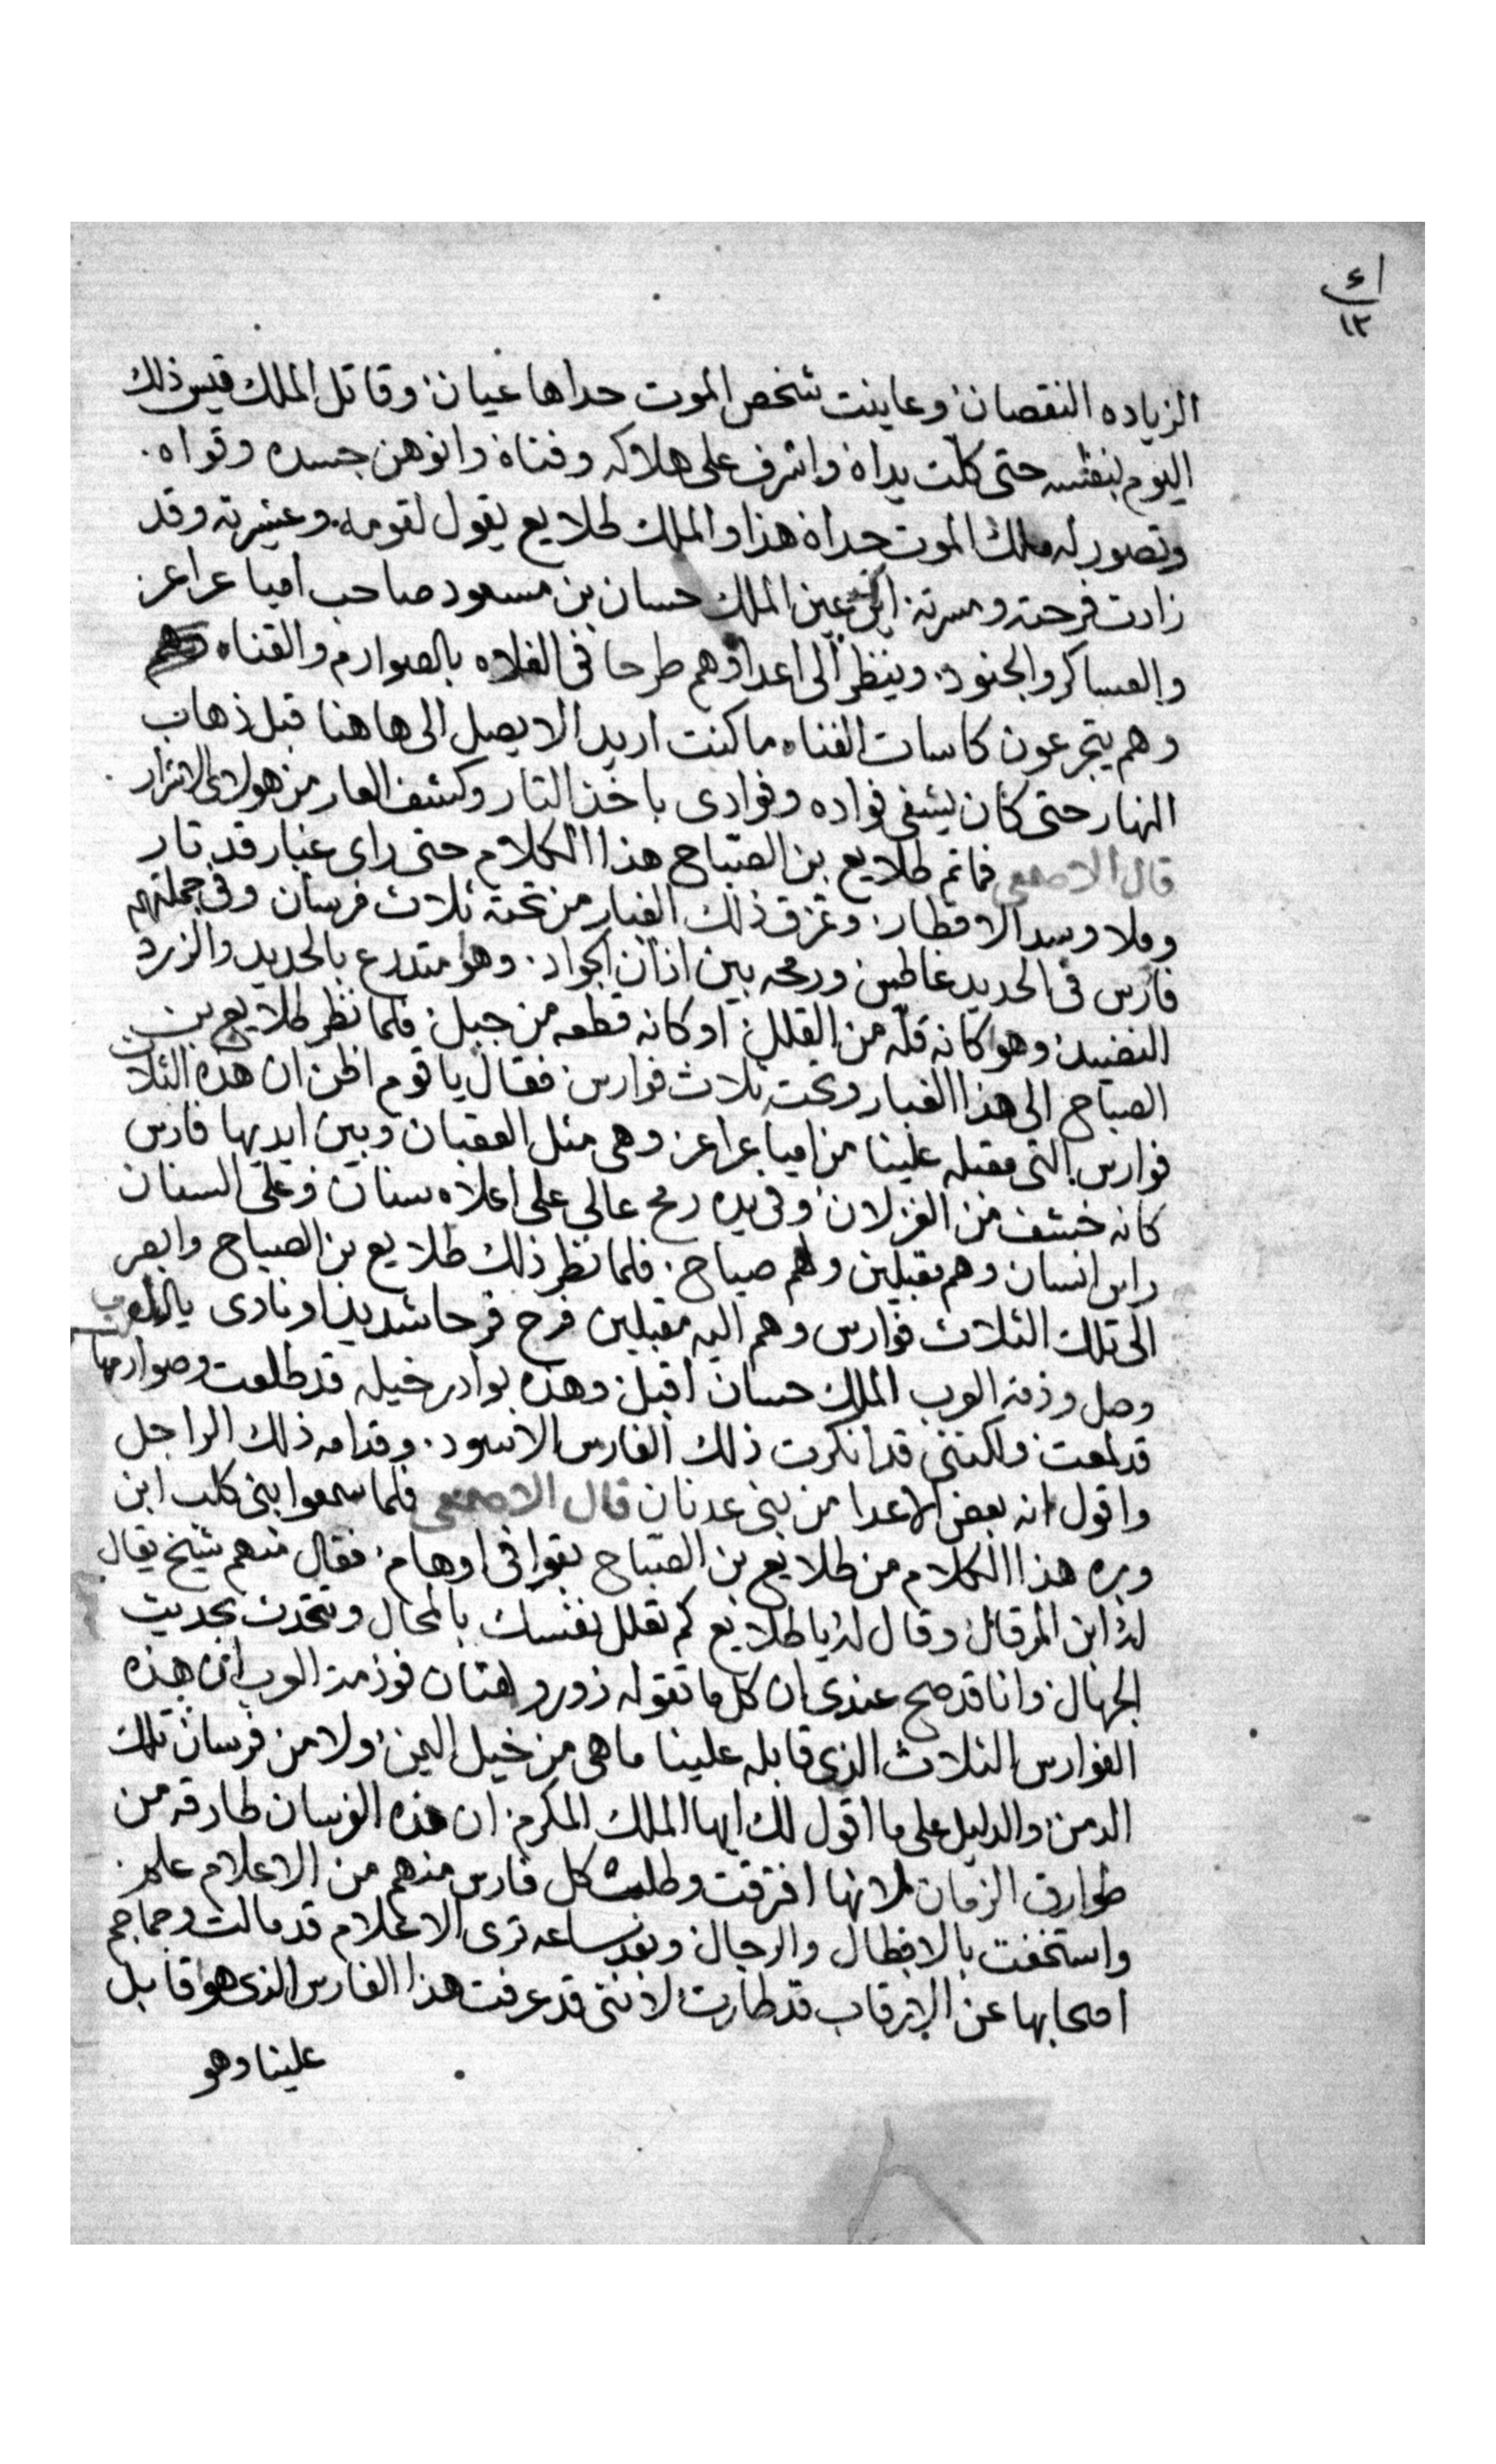 ٤١
١٢
الزياده النقصان وعاينت شخص الموت حداها عيان وقاتل الملك قيس ذلك
اليوم بنفسه حتى كلت يداه واشرف على هلاكه وفناه وانوهن جسده وقواه
وتصور له ملك الموت حداه هذا والملك طلايع يقول لقومه وعشيرته وقد
زادت فرحته ومسرته اين عين الملك حسان بن مسعود صاحب اميا عراعر
والعساكر والجنود وينظر الى اعداوهم طرحا فى الفلاه بالصوارم والقناه
وهم يتجرعون كاسات الفناه ما كنت اريد الا يصل الى هاهنا قبل ذهاب
النهار حتى كان يشفى فواده وفوادى باخذ التار وكشف العار من هولاى الاشرار
قال الاصمعى فماتم طلايع بن الصباح هذا الكلام حتى راى غبار قد تار
وملا وسد الاقطار وتمزق ذلك الغبار من تحته ثلاث فرسان وفى جملتهم
فارس فى الحديد غاطس ورمحه بين اذان الجواد وهو متدرع بالحديد والزرد
النضيد وهو كانه قله من القلل او كانه قطعه من جبل فلما نظر طلايع بن
الصباح الى هذا الغبار وتحته ثلاث فوارس فقال يا قوم اظن ان هذه الثلاث
فوارس التى مقبله علينا من اميا عراعر وهى مثل العقبان وبين ايديها فارس
كانه خشف من الغزلان وفى يده رمح عالى على اعلاه سنان وعلى السنان
راس انسان وهم مقبلين ولهم صياح فلما نظر ذلك طلايع بن الصباح وابصر
الى تلك الثلاث فوارس وهم اليه مقبلين فرح فرحا شديدا ونادى يالعرب
وصل وذمة العرب الملك حسان اقبل وهذه بوادر خيله قد طلعت وصوارمها
قد لمعت ولكننى قد انكرت ذلك الفارس الاسود وقدامه ذلك الراجل
واقول انه بعض الاعدا من بنى عدنان قال الاصمعى فلما سمعوا بنى كلب ابن
وبره هذا الكلام من طلايع بن الصباح بقوا فى اوهام فقال منهم شيخ يقال
له ابن المرقال وقال له يا طلايع كم تعلل نفسك بالمحال وتتحدث بحديت
الجهال وانا قد صح عندى ان كل ما تقوله زور وبهتان فوذمة العرب ان هذه
الفوارس الثلاث الذى قابله علينا ما هى من خيل اليمن ولا من فرسان تلك
الدمن والدليل على ما اقول لك ايها الملك المكرم ان هذه الفرسان طارقه من
طوارق الزمان لانها افترقت وطلبت كل فارس منهم من الاعلام علم
واستخفت بالابطال والرجال وبعد ساعه ترى الاعلام قد مالت وجماجم
اصحابها عن الارقاب قد طارت لاننى قد عرفت هذا الفارس الذى هو قابل
علينا وهو